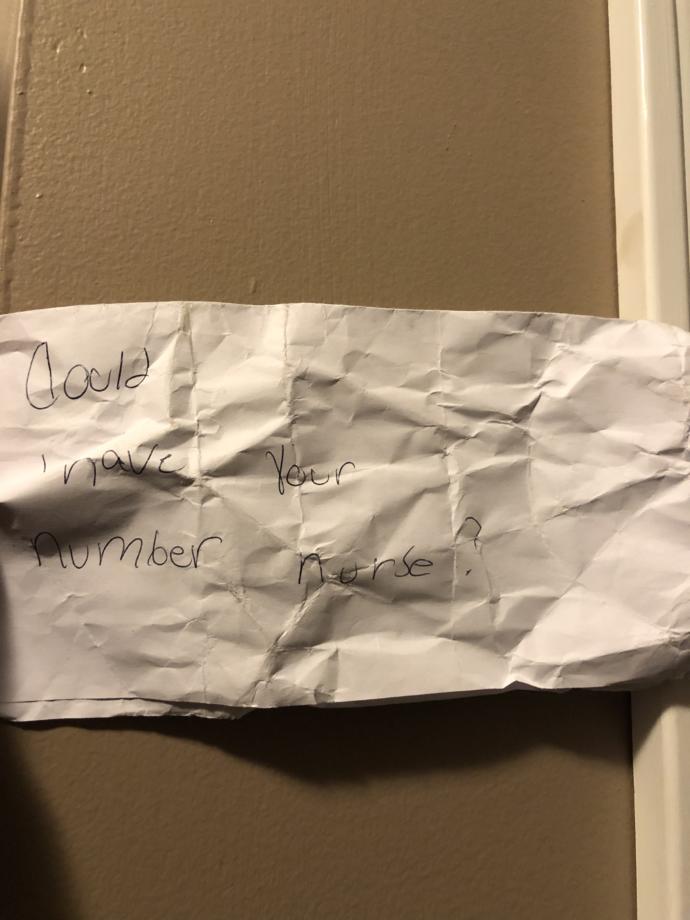 Could
I have your
number nurse?